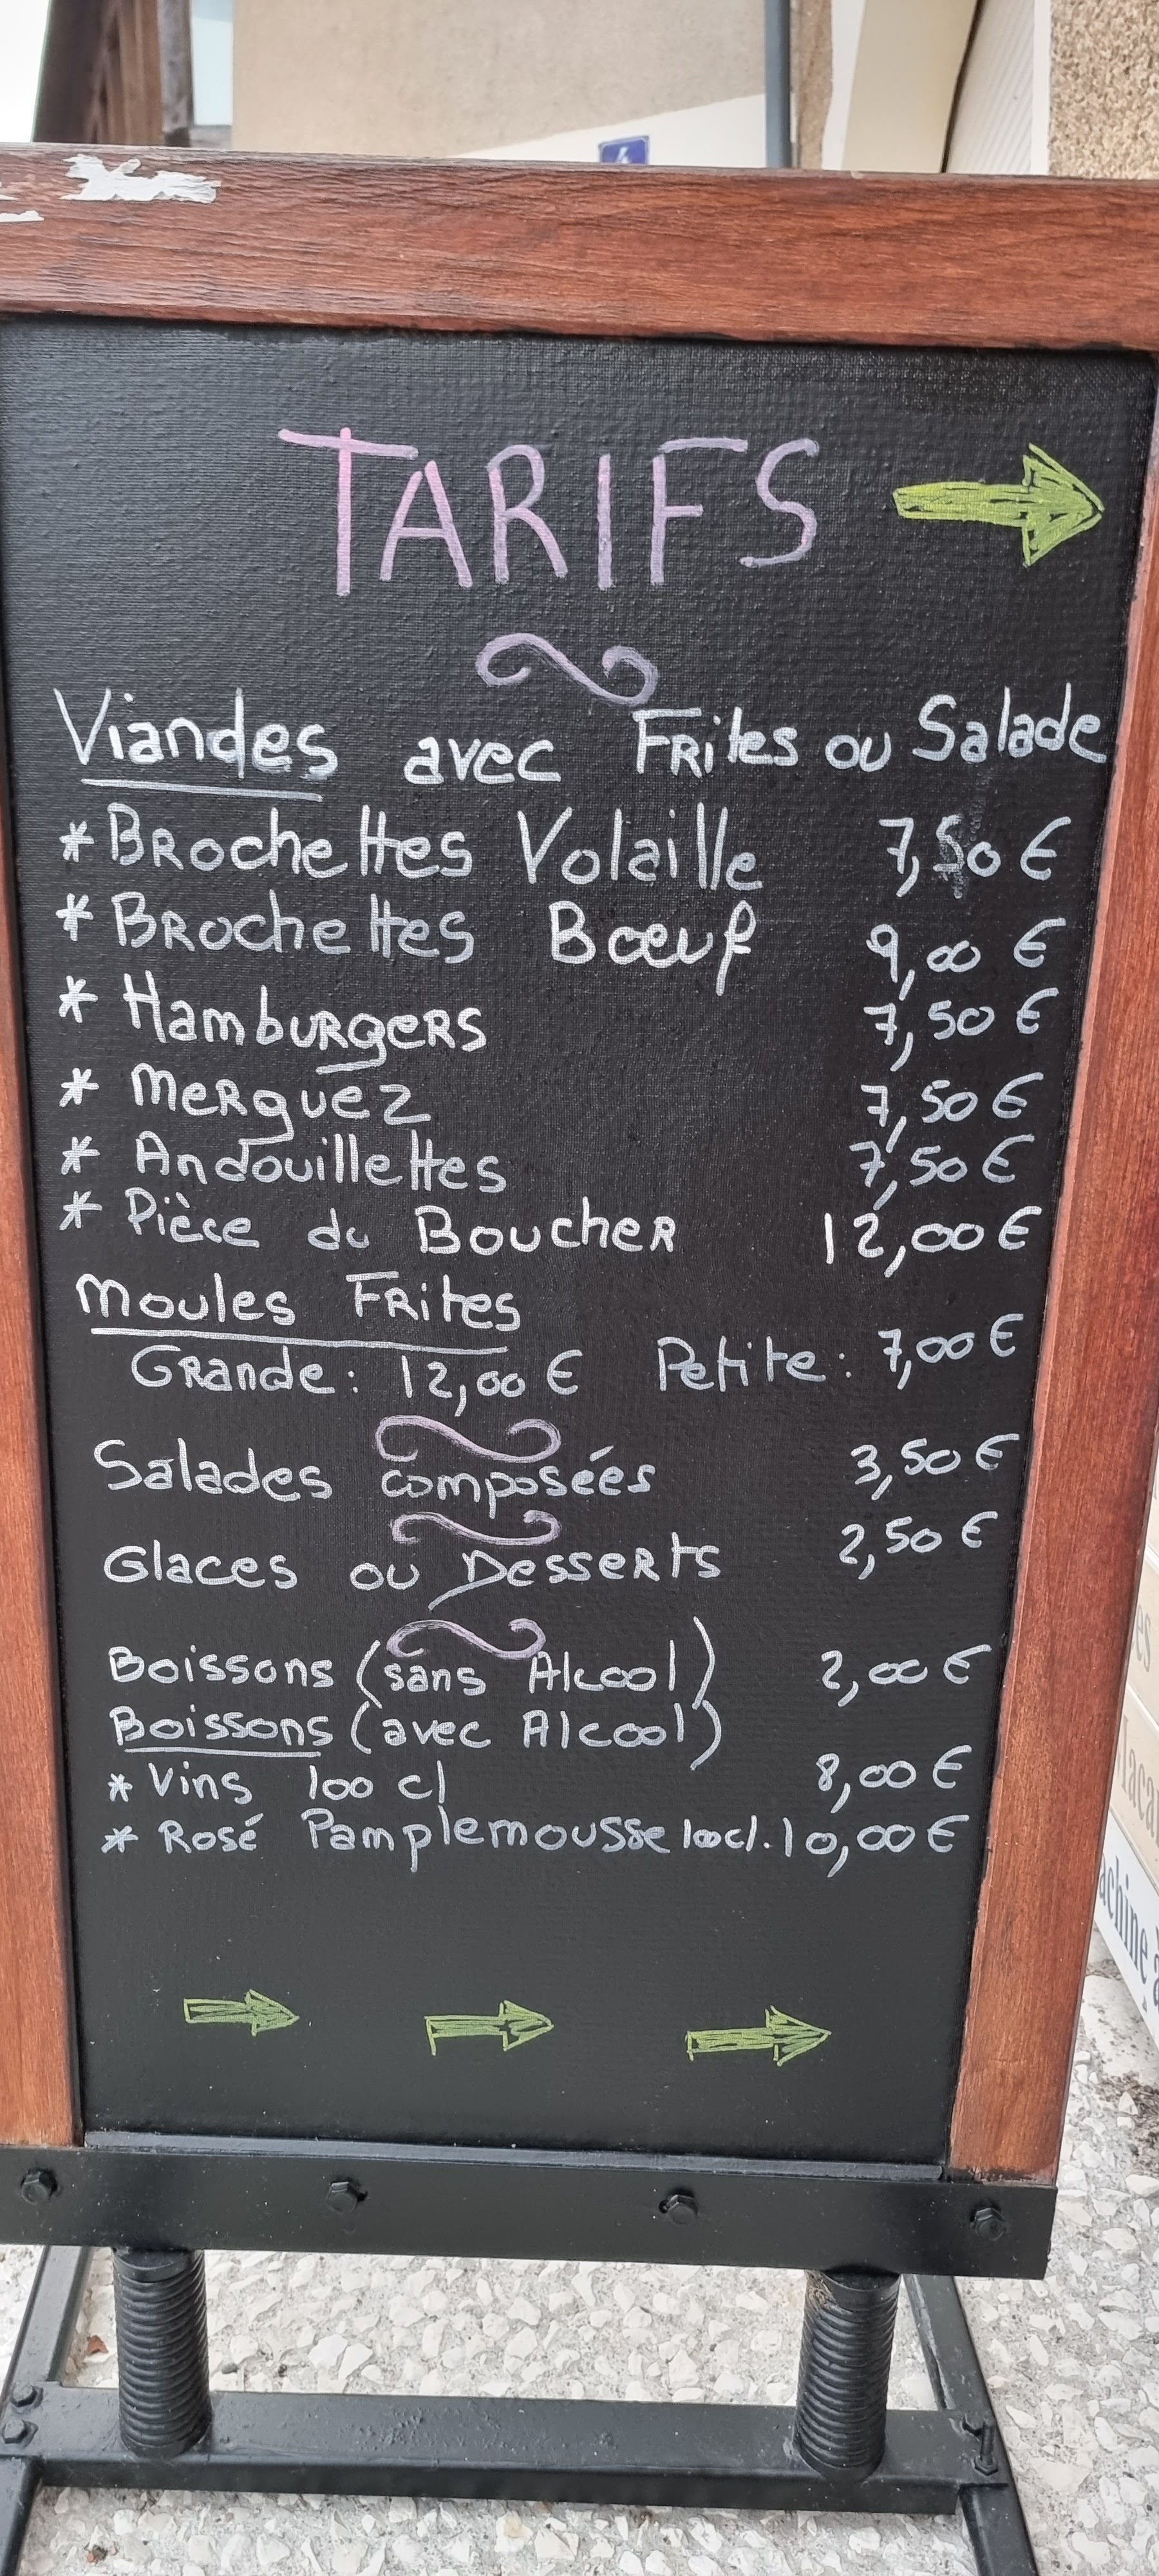 TARIFS
Viandes avec Frites ou Salade
* Brochettes Volaille 7,50 €
* Brochettes Bœuf 9,00 €
* Hamburgers 7,50 €
* Merguez 7,50 €
* Andouillettes 7,50 €
* Pièce du Boucher 12,00 €
Moules Frites
Grande : 12,00 € Petite : 7,00 €
Salades composées 3,50 €
Glaces ou Desserts 2,50 €
Boissons (sans Alcool) 2,00 €
Boissons (avec Alcool)
* Vins 100 cl 8,00 €
* Rosé Pamplemousse 100cl. 10,00 €